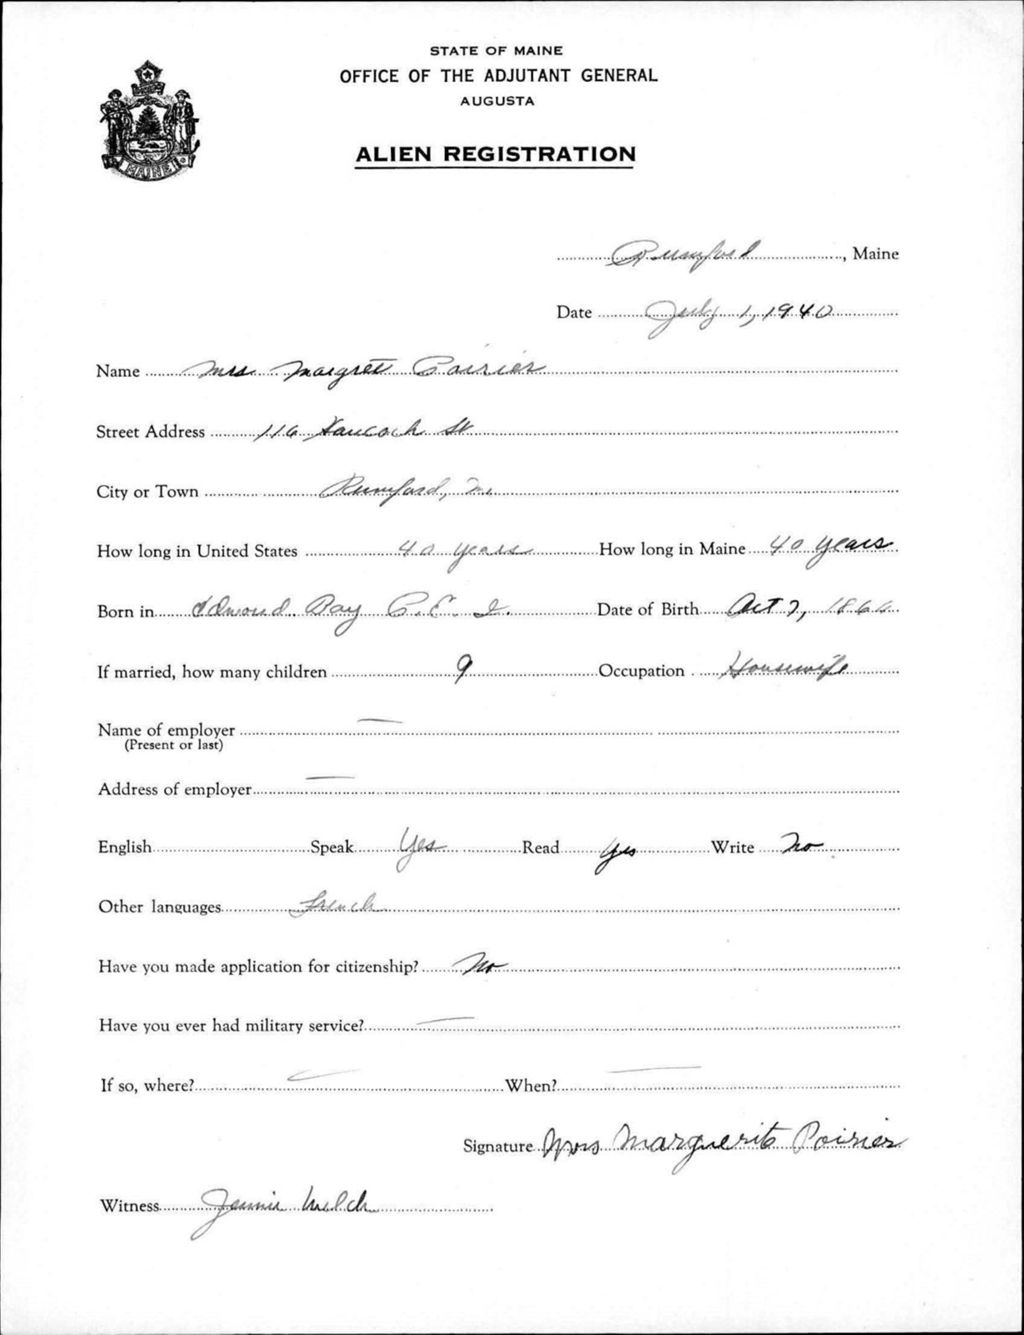 STATE OF MAINE
OFFICE OF THE ADJUTANT GENERAL
AUGUSTA
MAINE
ALIEN REGISTRATION
Rumford, Maine
Date July 1, 1940
Name Mrs. Margret Poirier
Street Address 116 Hancock St
City or Town Rumford, Me.
How long in United States 40 years How long in Maine 40 years
Born in Edmond Bay P. E. I. Date of Birth Oct 7,
If married, how many children 9 Occupation Housewife
Name of employer —
(Present or last)
Address of employer —
English Speak Yes Read Yes Write No
Other languages French
Have you made application for citizenship? No
Have you ever had military service? —
If so, where? — When? —
Signature Mrs Marguerite Poirier
Witness Jennie Welch